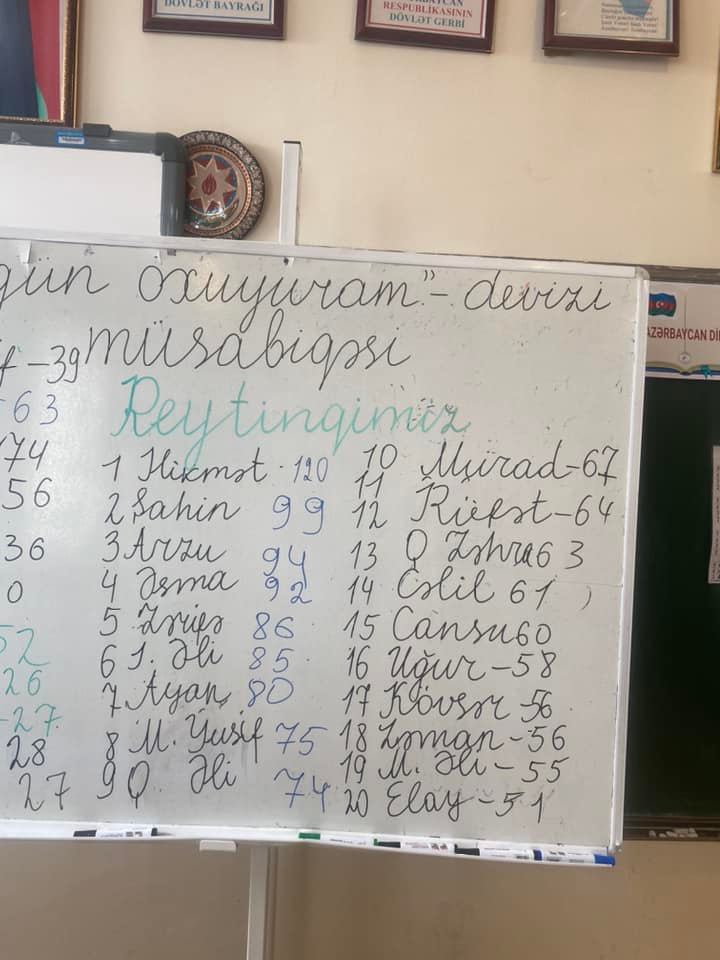 DÖVLƏT BAYRAĞI
RESPUBLİKASININ
DÖVLƏT GERBİ
AZƏRBAYCAN Dİ
gün oxuyuram" - devizi
müsabiqəsi
f - 39
- 63
74
56
36
0
52
26
- 27
28
27
Reytingimiz
1 Hikmət - 120
2 Şahin 99
3 Arzu 94
4 Əsma 92
5 86
6 İ. Əli 85
7 Ayan 80
8 M. Yusif 75
9 Q. Əli 74
10 Murad - 67
11
12 Rüfət - 64
13 Q Zəhra 63
14 Cəlil 61
15 Cansu 60
16 Uğur - 58
17 Kövsər - 56
18 Zaman - 56
19 M. Əli - 55
20 Elay - 51